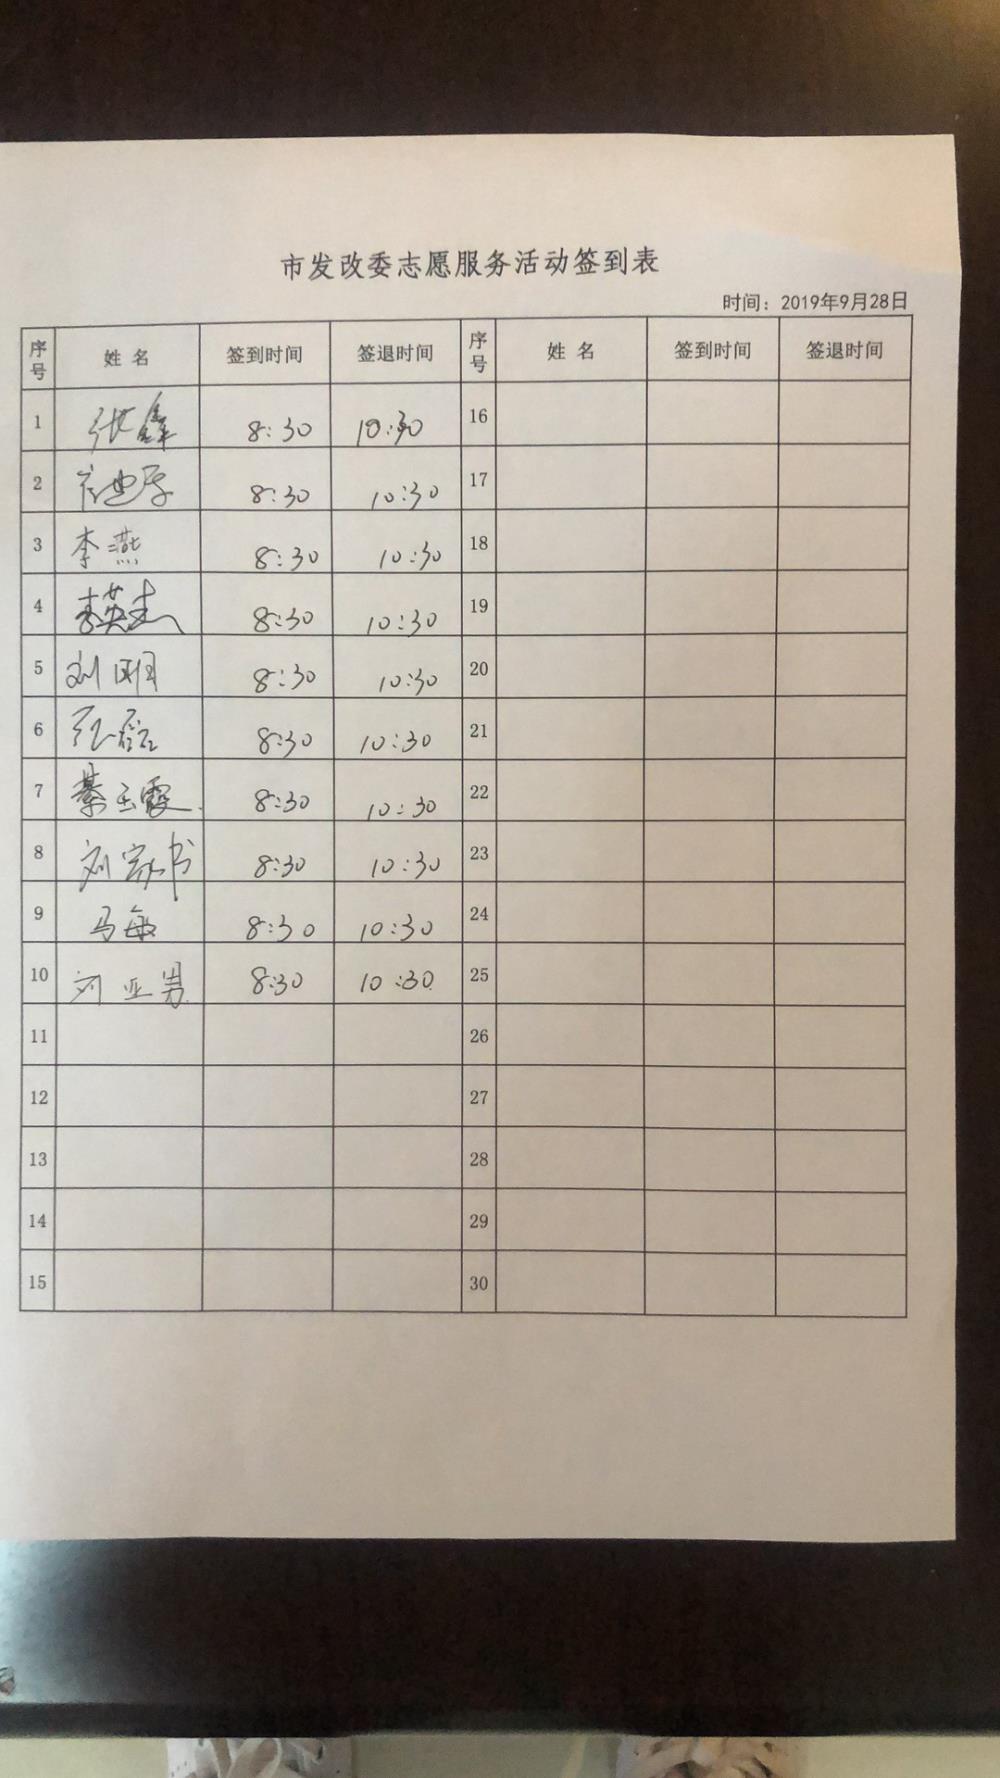 市发改委志愿服务活动签到表
时间：2019年9月28日
序号 姓名 签到时间 签退时间 序号 姓名 签到时间 签退时间
1 张鑫 8:30 10:30 16
2 8:30 10:30 17
3 李燕 8:30 10:30 18
4 李英杰 8:30 10:30 19
5 刘明 8:30 10:30 20
6 张磊 8:30 10:30 21
7 綦玉霞 8:30 10:30 22
8 刘家书 8:30 10:30 23
9 马敏 8:30 10:30 24
10 刘亚男 8:30 10:30 25
11 26
12 27
13 28
14 29
15 30